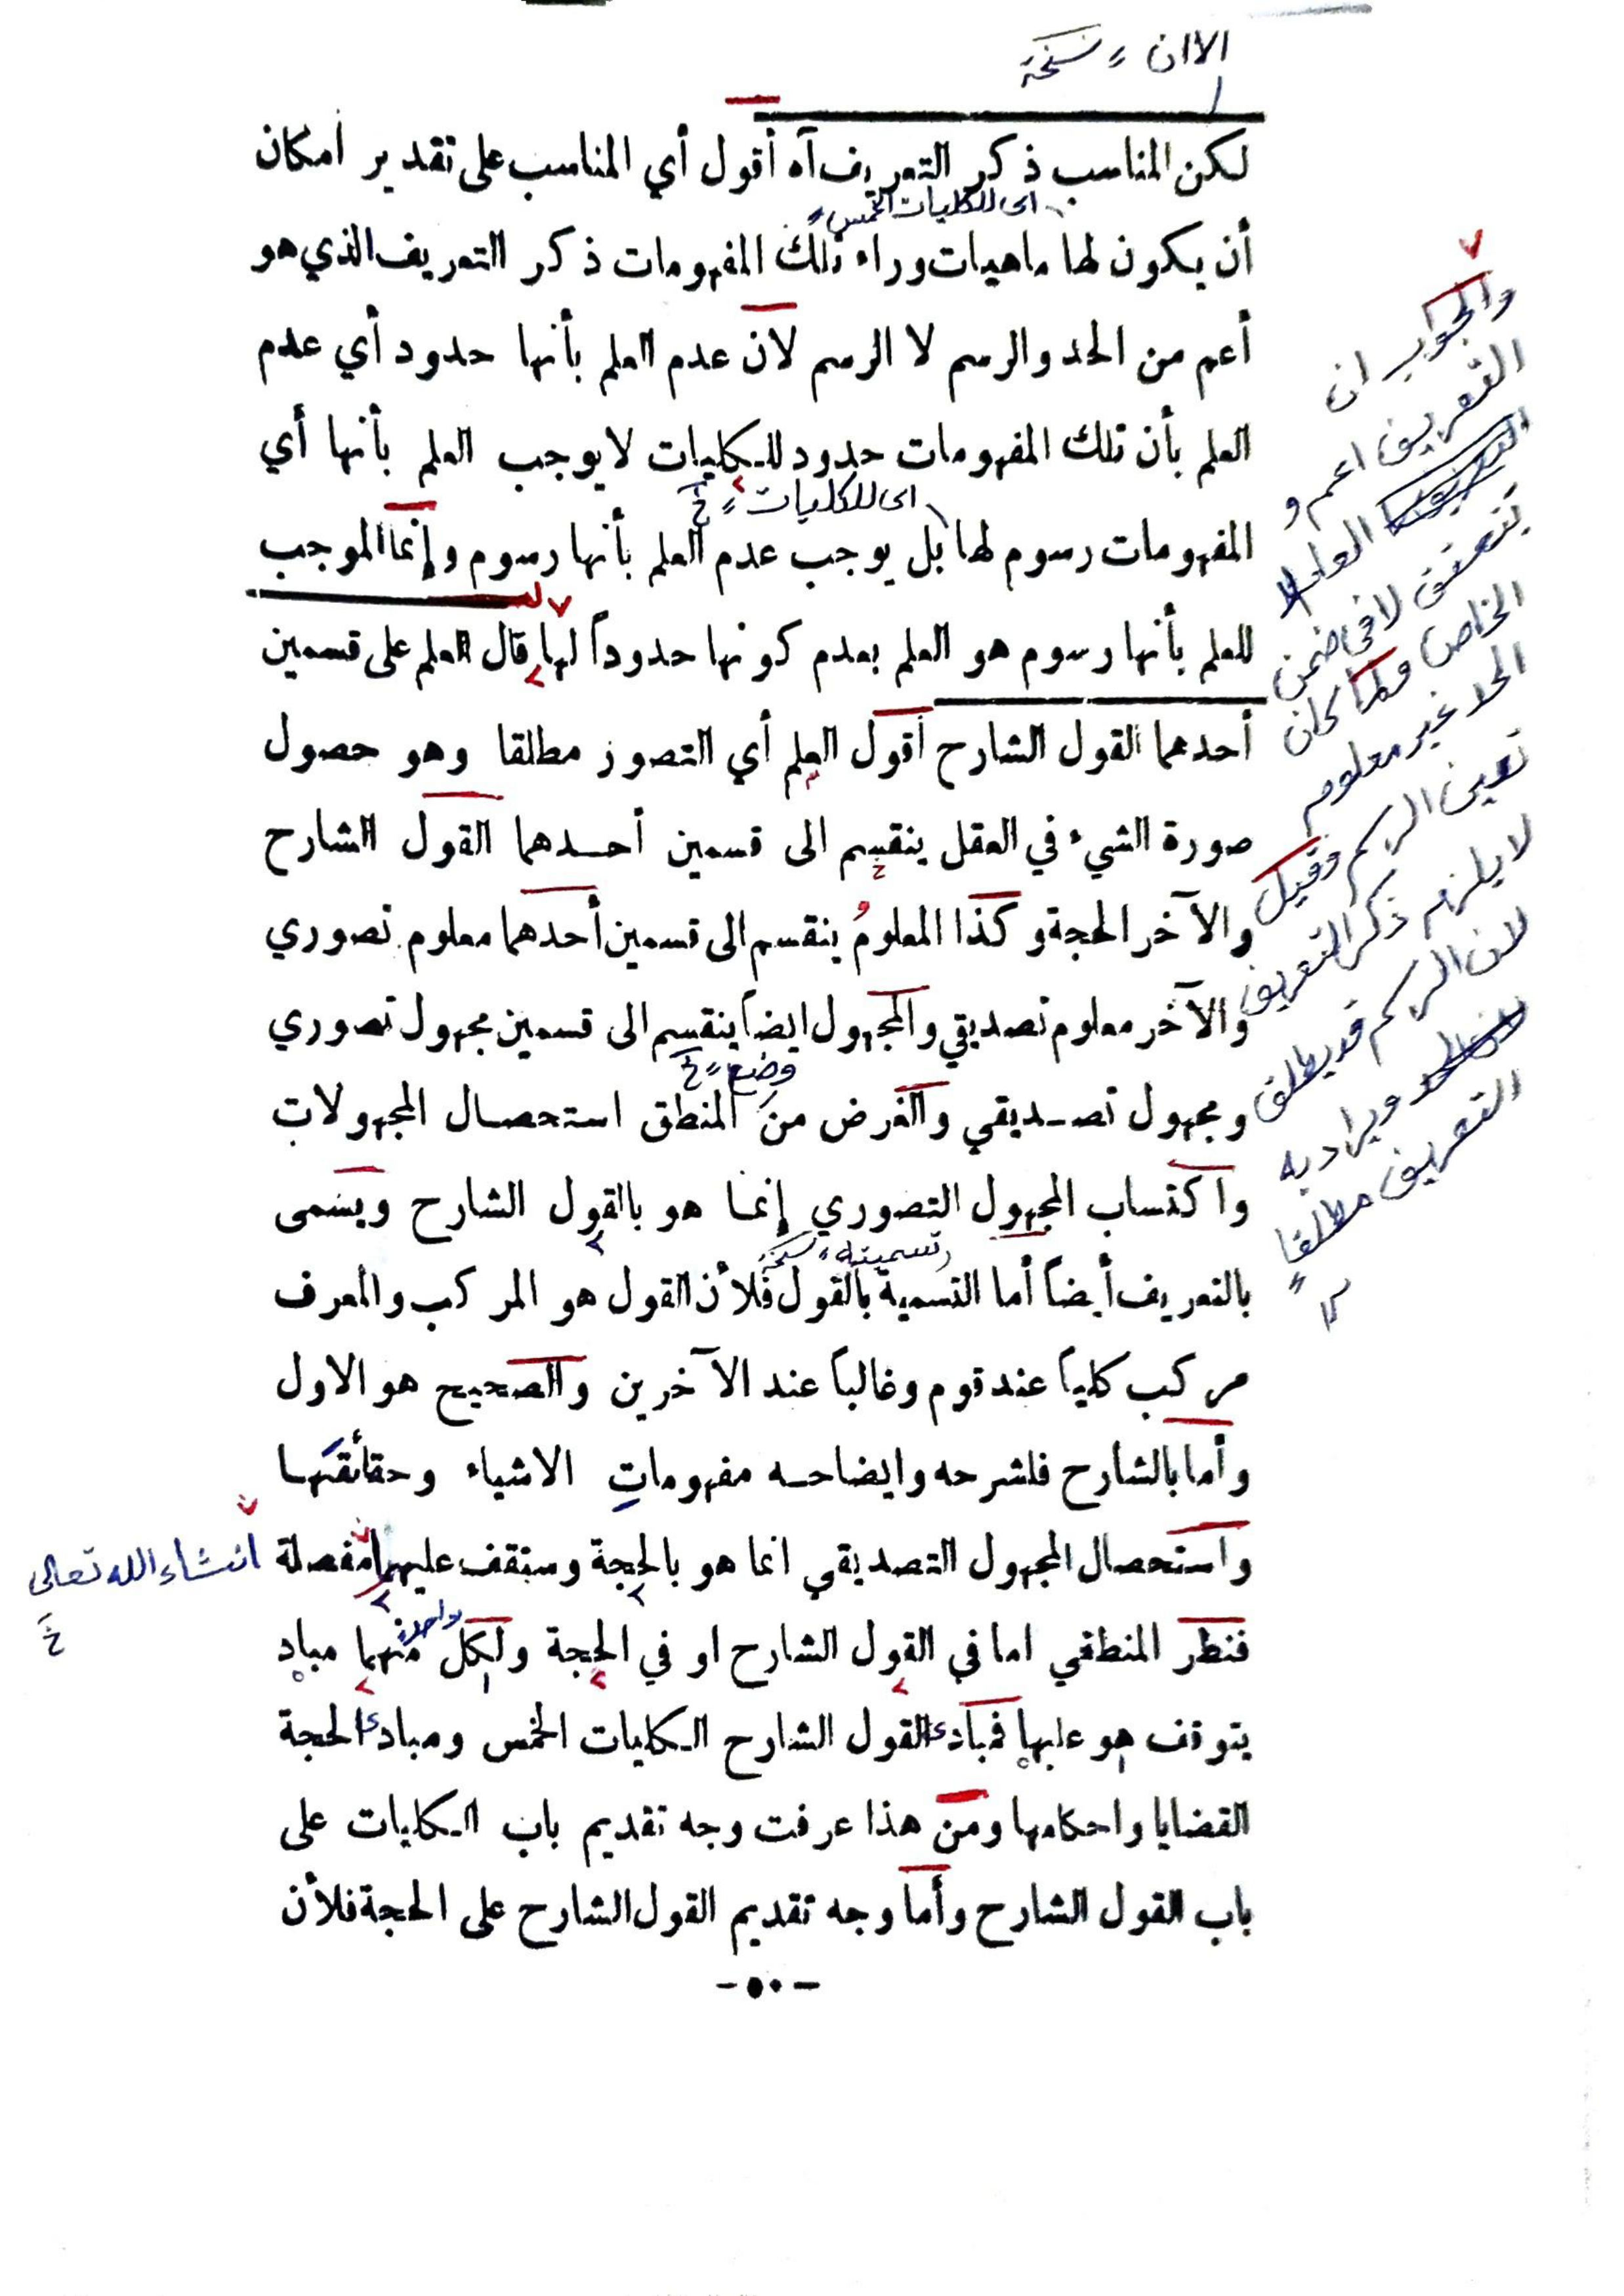 الا ان ؞ نسخة
لكن المناسب ذكر التعريف آه أقول أي المناسب على تقدير امكان
اى للكليات الخمس
أن يكون لها ماهيات وراء تلك المفهومات ذكر التعريف الذي هو
أعم من الحد والرسم لا الرسم لان عدم العلم بأنها حدود أي عدم
العلم بأن تلك المفهومات حدود للكليات لا يوجب العلم بأنها أي
اى للكليات ؞ خ
المفهومات رسوم لها بل يوجب عدم العلم بأنها رسوم وإنما الموجب
للعلم بأنها رسوم هو العلم بعدم كونها حدوداً لها قال العلم على قسمين
أحدهما القول الشارح أقول العلم أي التصور مطلقا وهو حصول
صورة الشيء في العقل ينقسم الى قسمين أحدهما القول الشارح
والآخر الحجة وكذا المعلومُ ينقسم الى قسمين أحدهما معلوم تصوري
والآخر معلوم تصديقي والمجهول ايضاً ينقسم الى قسمين مجهول تصوري
وضع ؞ خ
ومجهول تصديقي والغرض من المنطق استحصال المجهولات
واكتساب المجهول التصوري إنما هو بالقول الشارح ويسمى
تسميته ؞ نسخة
بالتعريف أيضاً أما التسمية بالقول فلأن القول هو المركب والمعرف
مركب كلياً عند قوم وغالباً عند الآخرين والصحيح هو الاول
وأما بالشارح فلشرحه وايضاحه مفهوماتِ الاشياء وحقائقها
واستحصال المجهول التصديقي انما هو بالحجة وستقف عليهما مفصلة
انشاء الله تعالى
خ
واحد
فنظر المنطقي اما في القول الشارح او في الحجة ولكل منهما مباد
يتوقف هو عليها فمبادئ القول الشارح الكليات الخمس ومبادئ الحجة
القضايا واحكامها ومن هذا عرفت وجه تقديم باب الكليات على
باب القول الشارح وأما وجه تقديم القول الشارح على الحجة فلأن
- ٥٠ -
والجواب ان
التعريف اعم و
العام لا
يتحقق لا فى ضمن
الخاص ولما كان
الحد غير معلوم
تعين الرسم وقيل
لا يلزم ذكر التعريف
لان الرسم قد يطلق
ويراد به
التعريف مطلقا